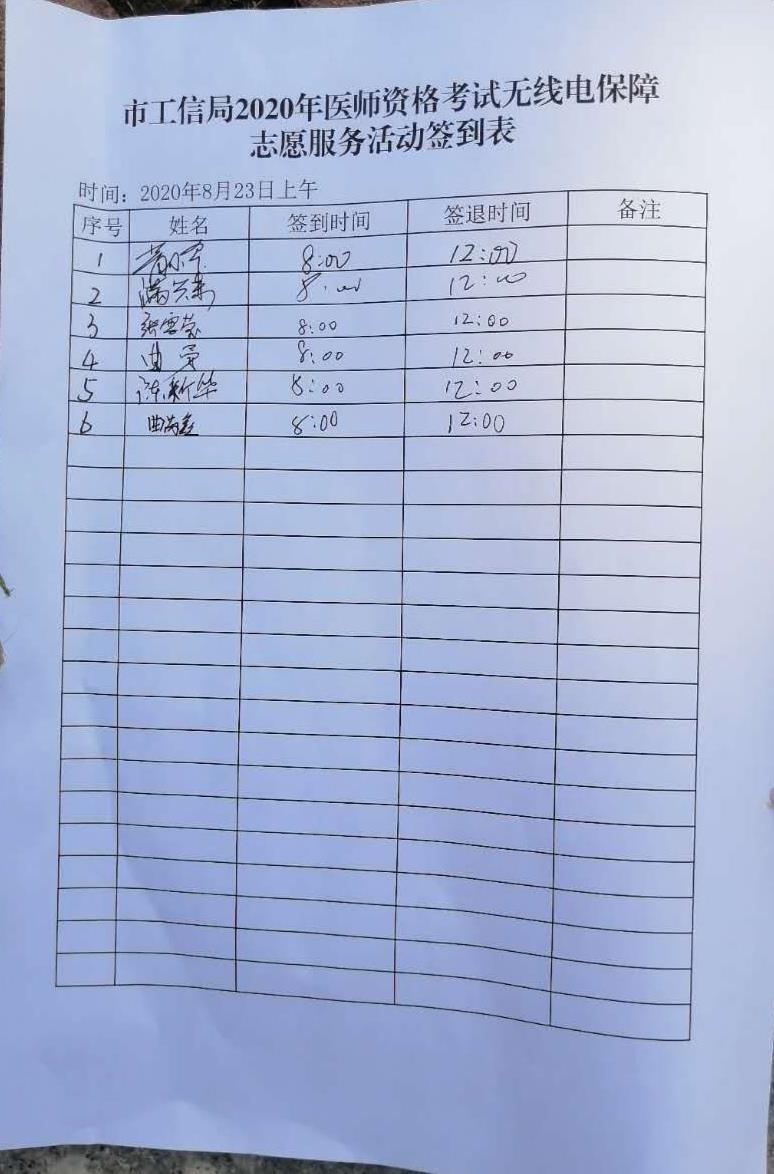 市工信局2020年医师资格考试无线电保障
志愿服务活动签到表
时间：2020年8月23日上午
序号 姓名 签到时间 签退时间 备注
1 8:00 12:00
2 8:00 12:00
3 8:00 12:00
4 8:00 12:00
5 陈新华 8:00 12:00
6 8:00 12:00